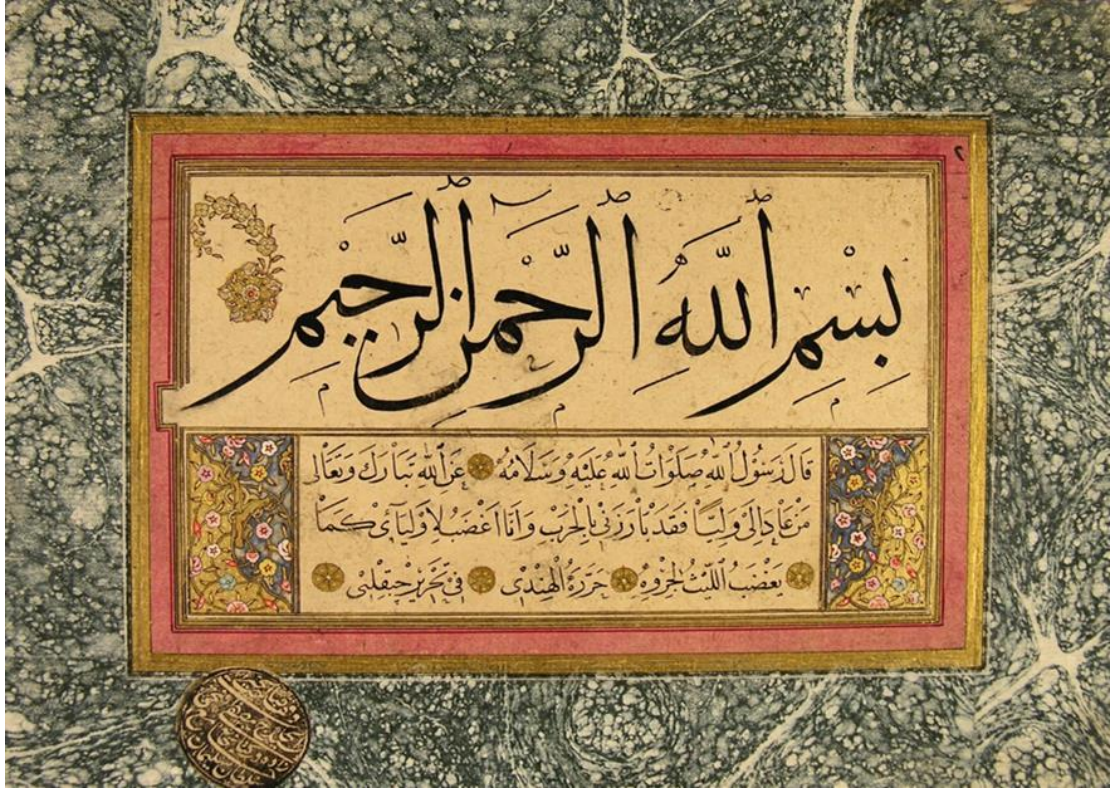 بِسْمِ ٱللَّهِ ٱلرَّحْمٰنِ ٱلرَّحِيْمِ
قَالَ رَسُولُ ٱللّٰهِ صَلَوَاتُ ٱللّٰهِ عَلَيْهِ وَسَلَامُهُ عَنِ ٱللّٰهِ تَبَارَكَ وَتَعَالٰى
مَنْ عَادٰى لِىْ وَلِيًّا فَقَدْ بَارَزَنِىْ بِالْحَرْبِ وَاَنَا اَغْضَبُ لِاَوْلِيَائِىْ كَمَا
يَغْضَبُ اللَّيْثُ لِجَرْوِهِ حَرَّرَهُ الْهِنْدِى فِى تَحْرِيرِ
٢